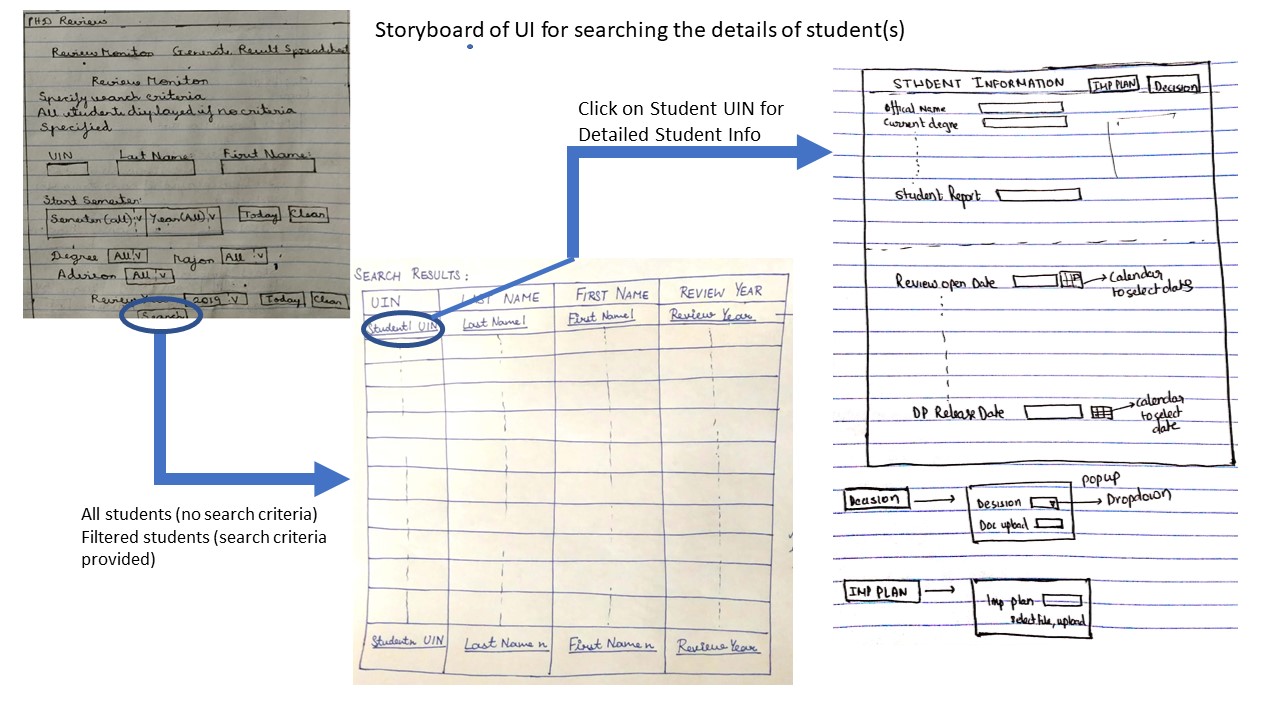 Storyboard of UI for searching the details of student(s)
PHD Review
Review Monitor Generate Result Spreadsheet
Review Monitor
Specify search criteria
All students displayed if no criteria
Specified
UIN Last Name: First Name:
Start Semester:
Semester(all) v Year(All) v Today Clear
Degree All v Major All v
Advisor All v
Review Year 2019 v Today Clear
Search
All students (no search criteria)
Filtered students (search criteria
provided)
SEARCH RESULTS:
UIN LAST NAME FIRST NAME REVIEW YEAR
Student1 UIN Last Name1 First Name1 Review Year
Studentn UIN Last Name n First Name n Review Year
Click on Student UIN for
Detailed Student Info
STUDENT INFORMATION IMP PLAN Decision
Offical Name
Current degre
Student Report
Review open Date calendar
to select date
DP Release Date calendar
to select
date
popup
Decision Desision Dropdown
Doc upload
IMP PLAN Imp plan
select file, upload